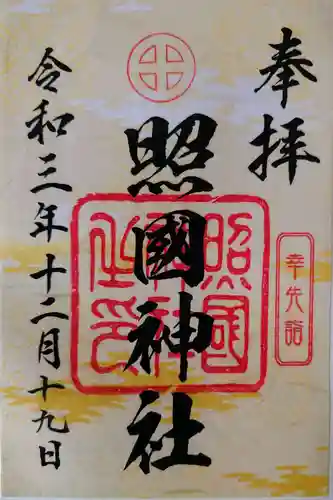 奉拝
幸先詣
照國神社
照國神社之印
令和三年十二月十九日